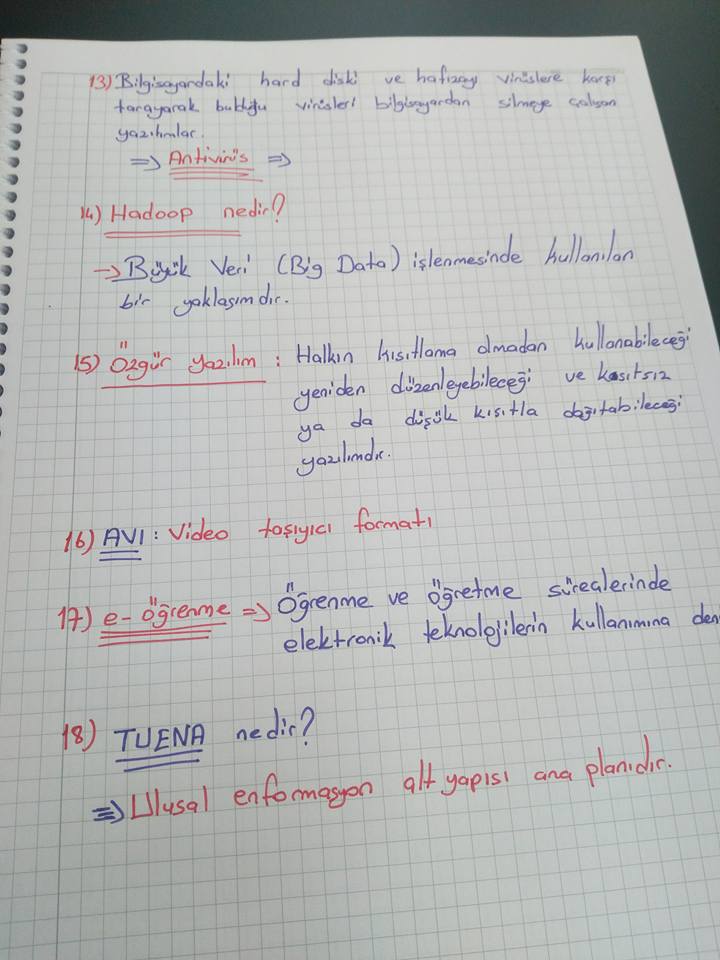 13) Bilgisayardaki hard diski ve hafızayı virüslere karşı
tarayarak bulduğu virüsleri bilgisayardan silmeye çalışan
yazılımlar.
⇒ Antivirüs ⇒
14) Hadoop nedir?
→ Büyük Veri (Big Data) işlenmesinde kullanılan
bir yaklaşımdır.
15) Özgür yazılım : Halkın kısıtlama olmadan kullanabileceği
yeniden düzenleyebileceği ve kısıtsız
ya da düşük kısıtla dağıtabileceği
yazılımdır.
16) AVI : Video taşıyıcı formatı
17) e-öğrenme ⇒ Öğrenme ve öğretme süreçlerinde
elektronik teknolojilerin kullanımına den
18) TUENA nedir?
⇒ Ulusal enformasyon alt yapısı ana planıdır.